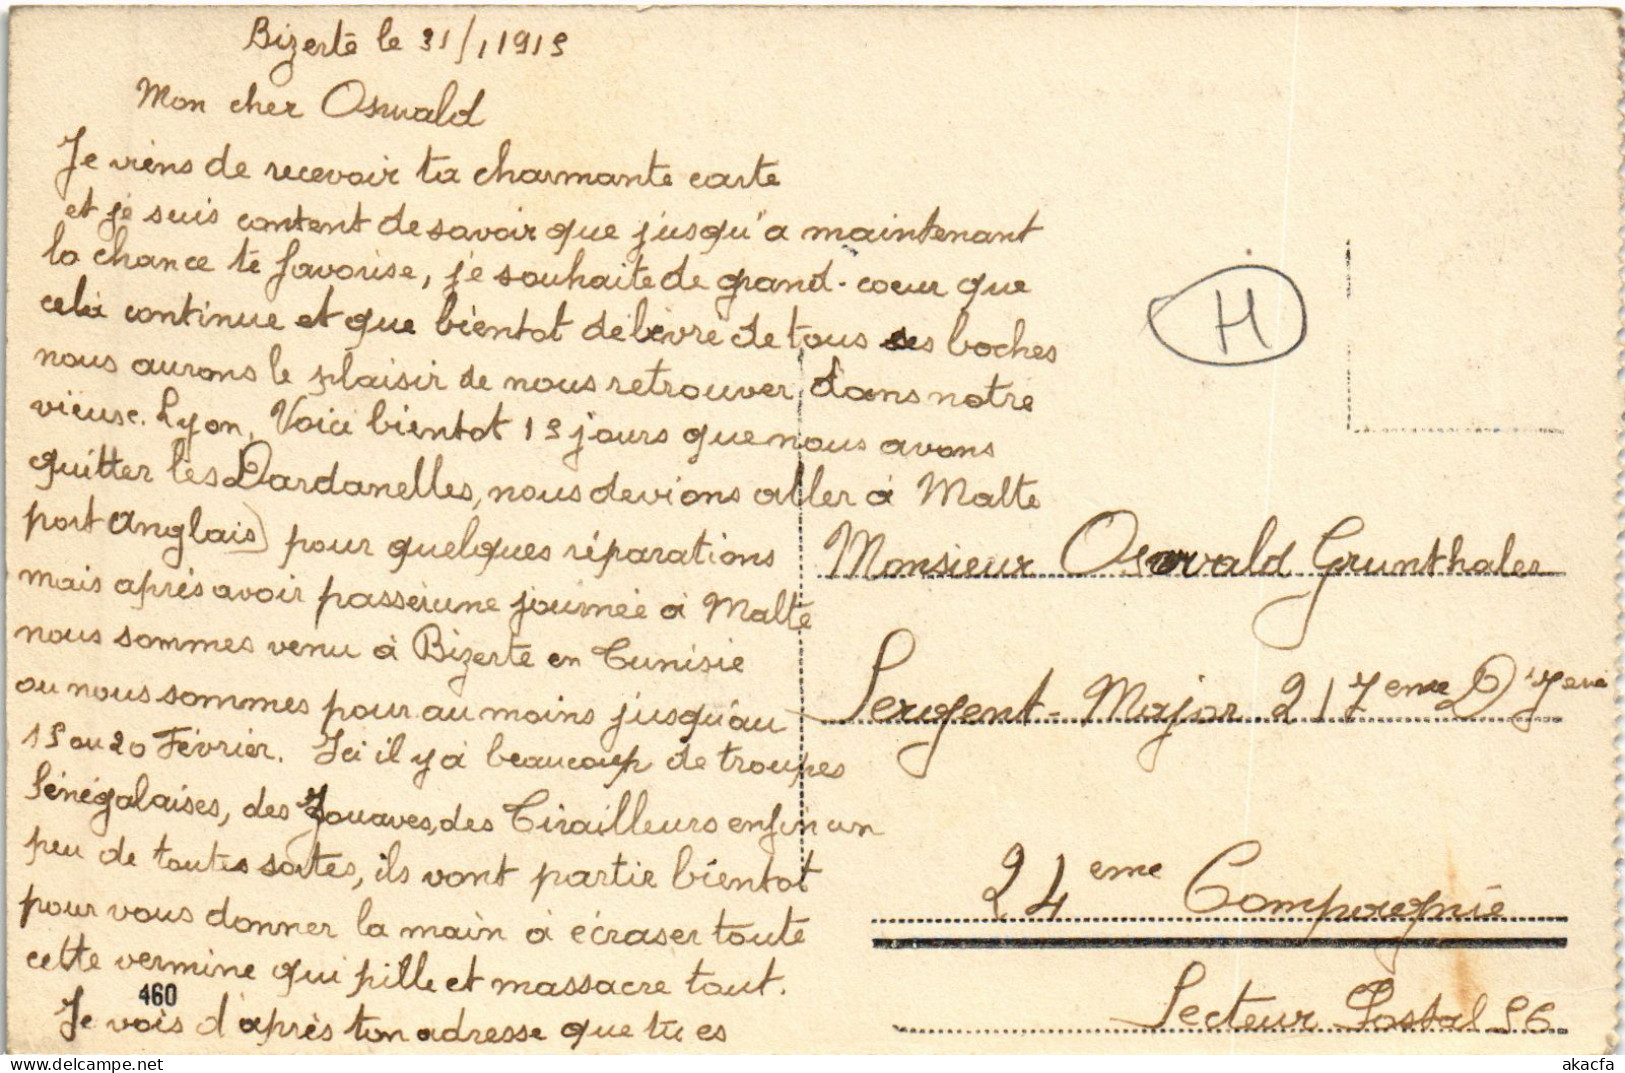 Bizerte le 31/1 1915
Mon cher Oswald
Je viens de recevoir ta charmante carte
et je suis content de savoir que jusqu'a maintenant
la chance te favorise, je souhaite de grand-coeur que
cela continue et que bientot délivre de tous ses boches
nous aurons le plaisir de nous retrouver dans notre
vieuse Lyon. Voici bientot 15 jours que nous avons
quitter les Dardanelles, nous devions aller à Malte
port Anglais) pour quelques réparations
mais après avoir passer une journée à Malte
nous sommes venu à Bizerte en Tunisie
ou nous sommes pour au moins jusqu'au
15 ou 20 Février. Ici il y a beaucoup de troupes
Sénégalaises, des Zouaves, des Tirailleurs enfin un
peu de toutes sortes, ils vont partir bientot
pour vous donner la main à écraser toute
cette vermine qui pille et massacre tout.
460
Je vois d'après ton adresse que tu es
H
Monsieur Oswald Grunthaler
Sergent-Major 217eme D'Ierie
24eme Compagnie
Secteur Postal 56
akacfa